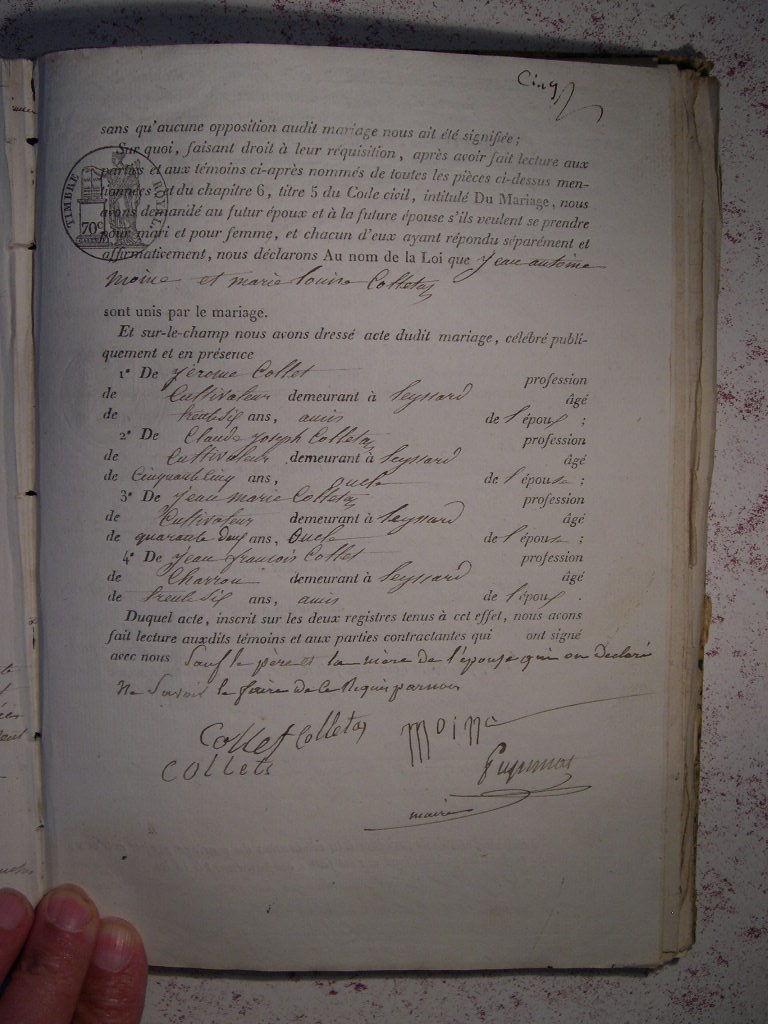 Cinq
sans qu'aucune opposition audit mariage nous ait été signifiée;
Sur quoi, faisant droit à leur réquisition, après avoir fait lecture aux
parties et aux témoins ci-après nommés de toutes les pièces ci-dessus men-
tionnées et du chapitre 6, titre 5 du Code civil, intitulé Du Mariage, nous
avons demandé au futur époux et à la future épouse s'ils veulent se prendre
pour mari et pour femme, et chacun d'eux ayant répondu séparément et
affirmativement, nous déclarons Au nom de la Loi que Jean antoine
moine et marie louise Colletaz
TIMBRE ROYAL
70c
sont unis par le mariage.
Et sur-le-champ nous avons dressé acte dudit mariage, célébré publi-
quement et en présence
1° De Jérome Collet profession
de Cultivateur demeurant à Leyssard âgé
de trente six ans, amis de l'époux ;
2° De Claude Joseph Colletaz profession
de Cultivateur demeurant à Leyssard âgé
de Cinquante Cinq ans, oncle de l'épouse ;
3° De Jean Marie Colletaz profession
de Cultivateur demeurant à Leyssard âgé
de quarante deux ans, Oncle de l'épouse ;
4° De Jean françois Collet profession
de Charron demeurant à Leyssard âgé
de trente Six ans, amis de l'époux .
Duquel acte, inscrit sur les deux registres tenus à cet effet, nous avons
fait lecture auxdits témoins et aux parties contractantes qui ont signé
avec nous Sauf le père et la mère de l'épouse qui on Déclaré
Ne Savoir le faire de ce Requis par nous
Collet Colletaz moine
Collets
maire